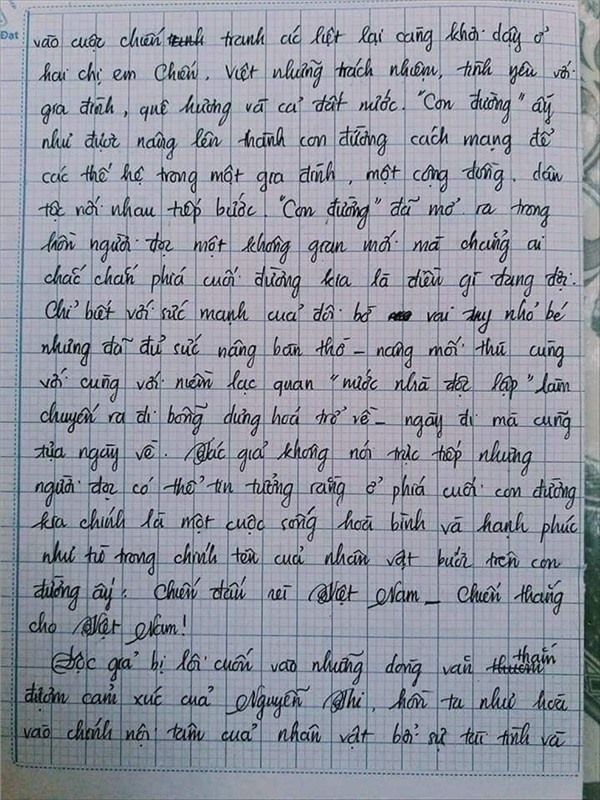 Đạt
vào cuộc chiến tranh ác liệt lại càng khơi dậy ở
hai chị em Chiến, Việt những trách nhiệm, tình yêu với
gia đình, quê hương và cả đất nước. "Con đường" ấy
như được nâng lên thành con đường cách mạng để
các thế hệ trong một gia đình, một cộng đồng, dân
tộc nối nhau tiếp bước. "Con đường" đã mở ra trong
hồn người đọc một không gian mới mà chẳng ai
chắc chắn phía cuối đường kia là điều gì đang đợi.
Chỉ biết với sức mạnh của đôi bờ vai tuy nhỏ bé
nhưng đã đủ sức nâng bàn thờ – nặng mối thù cùng
với cùng với niềm lạc quan "nước nhà độc lập" làm
chuyến ra đi bỗng dưng hoá trở về – ngày đi mà cũng
tựa ngày về. Tác giả không nói trực tiếp nhưng
người đọc có thể tin tưởng rằng ở phía cuối con đường
kia chính là một cuộc sống hoà bình và hạnh phúc
như từ trong chính tên của nhân vật bước trên con
đường ấy: Chiến đấu vì Việt Nam – Chiến thắng
cho Việt Nam!
Độc giả bị lôi cuốn vào những dòng văn thấm
đượm cảm xúc của Nguyễn Thi, hồn ta như hoà
vào chính nội tâm của nhân vật bởi sự tài tình và